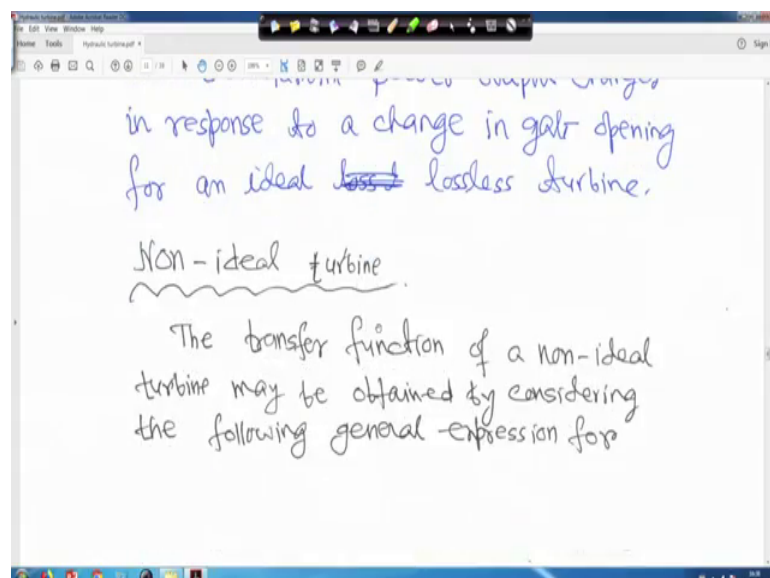 Hydraulic turbine.pdf - Adobe Acrobat Reader DC
File Edit View Window Help
Home Tools Hydraulic turbine.pdf × Sign
turbine power output changes
in response to a change in gate opening
for an ideal lossless turbine.
Non-ideal turbine
The transfer function of a non-ideal
turbine may be obtained by considering
the following general expression for